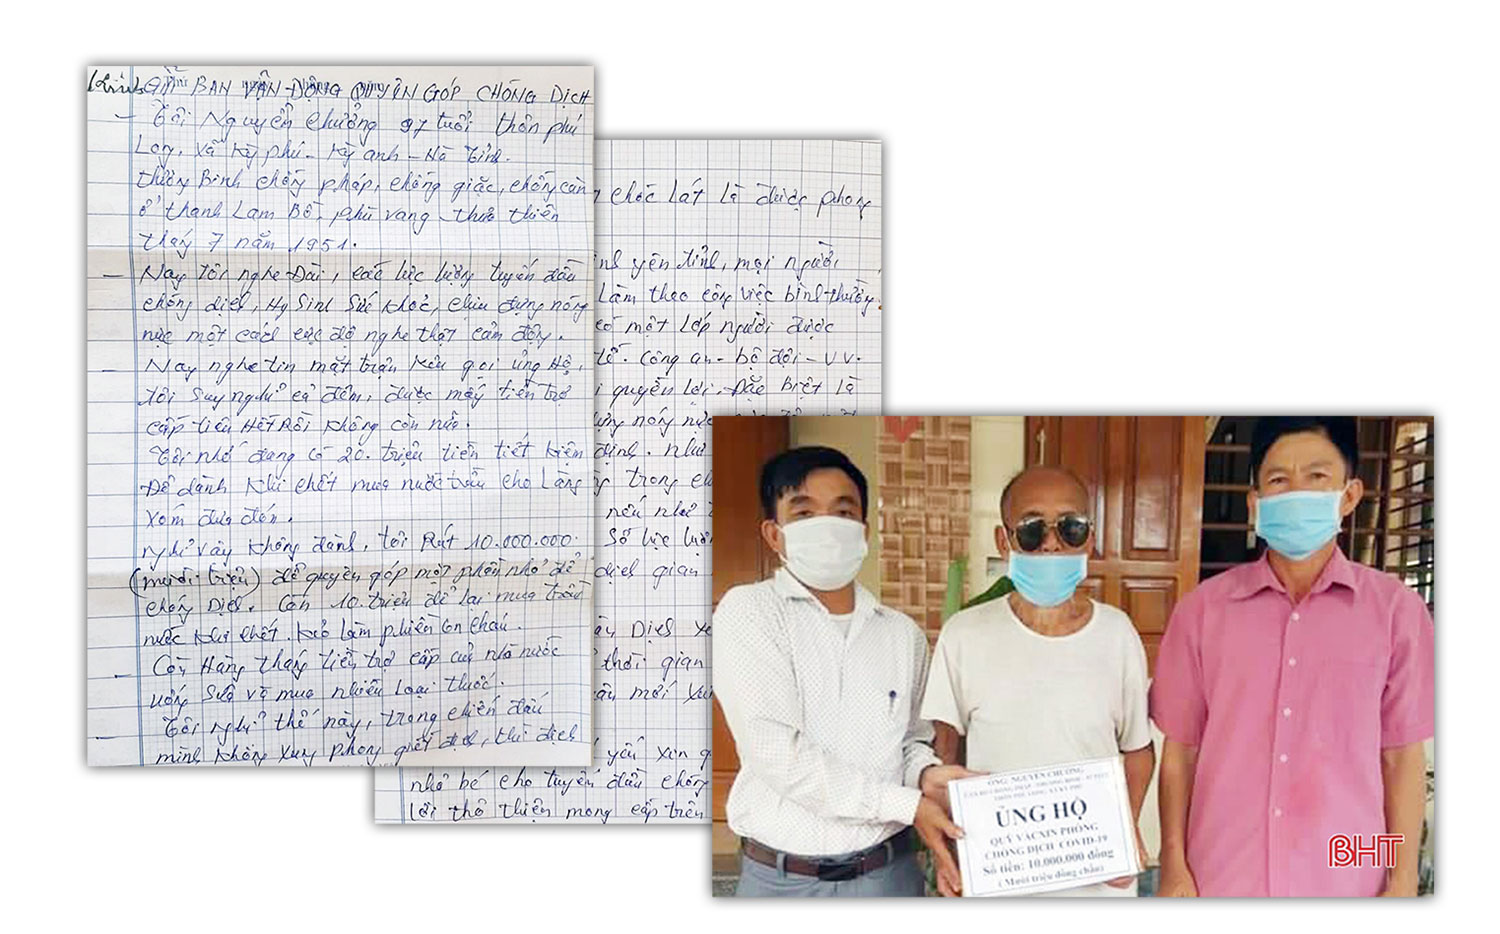 Kính GỬI BAN VẬN ĐỘNG QUYÊN GÓP CHỐNG DỊCH
- Tôi Nguyễn Chưởng 97 tuổi thôn phú
Long, xã Kỳ phú - Kỳ anh - Hà Tỉnh.
thương Binh chống pháp, chống giặc, chống càn
ở thanh Lam Bồ, phú vang - thừa thiên
tháng 7 năm 1951.
- Nay tôi nghe Đài, các lực lượng tuyến đầu
chống dịch, Hy Sinh Sức khoẻ, chịu đựng nóng
nực một cách cực độ nghe thật cảm động.
- Nay nghe tin mặt trận kêu gọi ủng Hộ,
tôi Suy nghỉ cả đêm, được mấy tiền trợ
cấp tiêu HẾT RỒI không còn nữa.
Tôi nhớ đang có 20. triệu tiền tiết kiệm
Để dành khi chết mua nước trầu cho Làng
xóm đưa đón.
nghỉ vậy không đành, tôi Rút 10.000.000.
(mười triệu) để quyên góp một phần nhỏ để
chống Dịch. Còn 10. triệu để lại mua trầu
nước khi chết. kẻo làm phiền con cháu.
- Còn Hàng tháng tiền trợ cấp của nhà nước
uống Sữa và mua nhiều loại thuốc.
- Tôi nghỉ thế này, trong chiến đấu
mình không xung phong giết địch, thì địch
chốc lát là được phong
yên tỉnh, mọi người
Làm theo công việc bình thường.
có một lớp người được
tế. Công an - bộ đội - v v.
quyền lợi. Đặc biệt là
nóng nực
định. như
trong
nếu như
Số lực lượng
dịch gian
Dịch
thời gian
mới
yếu xin
nhỏ bé cho tuyến đầu chống
lời thô thiển mong cấp trên
ÔNG: NGUYỄN CHƯỞNG
ỦNG HỘ
QUỸ VACXIN PHÒNG
CHỐNG DỊCH COVID-19
Số tiền: 10.000.000 đồng
(Mười triệu đồng chẵn)
BHT